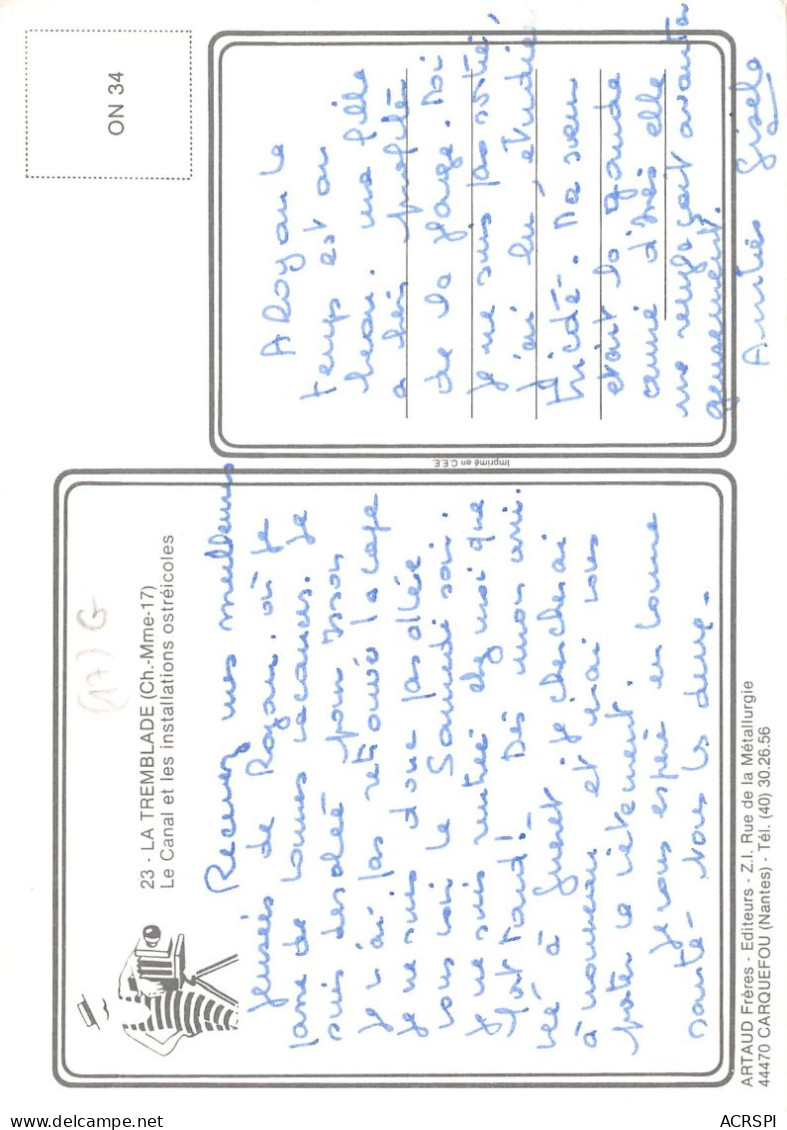 (17) G
23 - LA TREMBLADE (Ch.-Mme-17)
Le Canal et les installations ostréicoles
Recevez mes meilleures
pensées de Royan. où je
passe de bonnes vacances. Je
suis désolée pour
je n'ai pas retrouvé la
Je ne suis donc pas allée
vous voir le Sammedi soir.
Je ne suis rentrée chez moi que
fort tard! Dès mon arri
vée à Guéret. je chercherai
à nouveau et irai vous
porter le vêtement.
Je vous espère en bonne
santé - tous les deux.
ARTAUD Frères - Editeurs - Z.I. Rue de la Métallurgie
44470 CARQUEFOU (Nantes) - Tél. (40) 30.26.56
Imprimé en C.E.E.
ON 34
A Royan le
temps est au
beau. ma fille
a bien profité
de la plage. Moi
je ne suis pas sortie,
j'ai lu, étudié,
tricoté. Ma sœur
etait la grande
amie d'Inès elle
me remplaçait avanta
geusement.
Amitiés Gisèle
ACRSPI